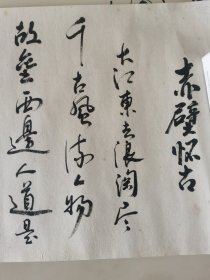 赤壁怀古
大江東去浪淘尽
千古風流人物
故壘西邊人道是